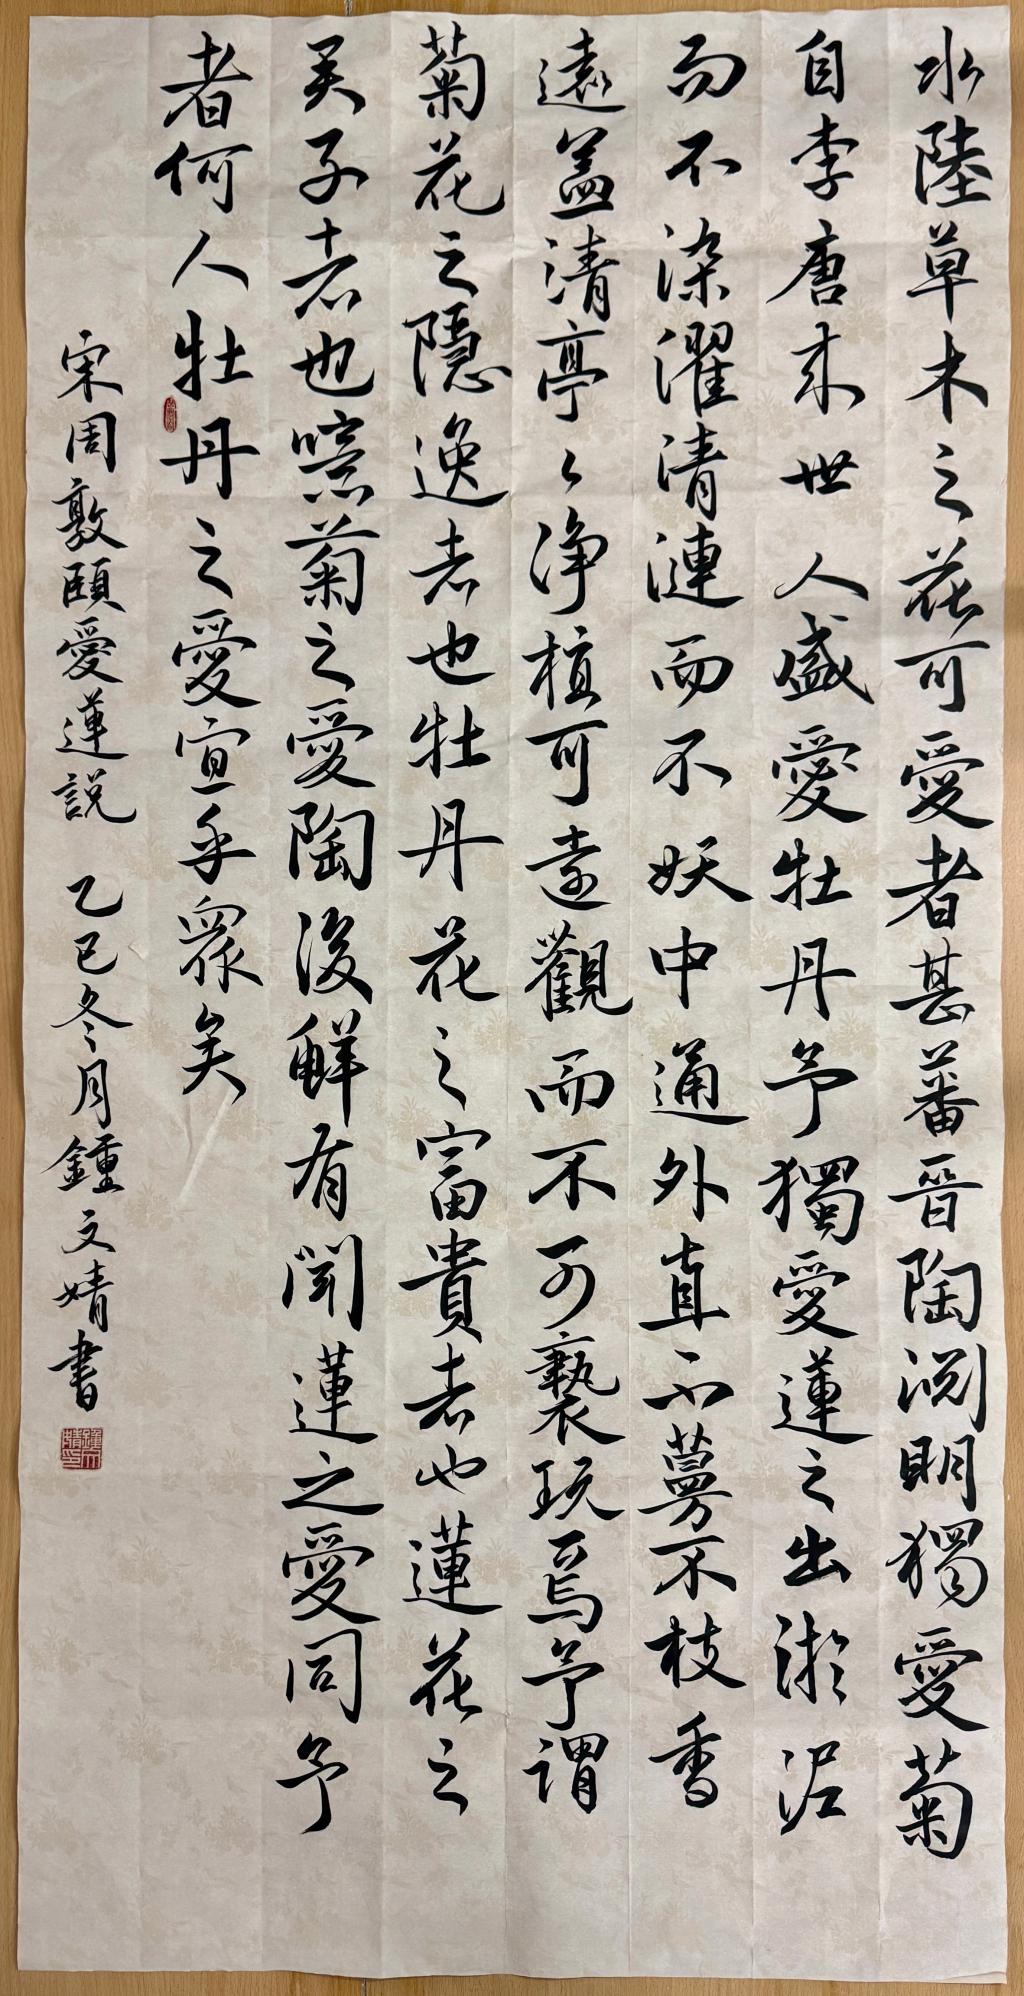 水陸草木之花可愛者甚蕃晉陶淵明獨愛菊
自李唐來世人盛愛牡丹予獨愛蓮之出淤泥
而不染濯清漣而不妖中通外直不蔓不枝香
遠益清亭々淨植可遠觀而不可褻玩焉予謂
菊花之隱逸者也牡丹花之富貴者也蓮花之
君子者也噫菊之愛陶後鮮有聞蓮之愛同予
者何人牡丹之愛宜乎眾矣
宋周敦頤愛蓮說 乙巳冬月鍾文婧書